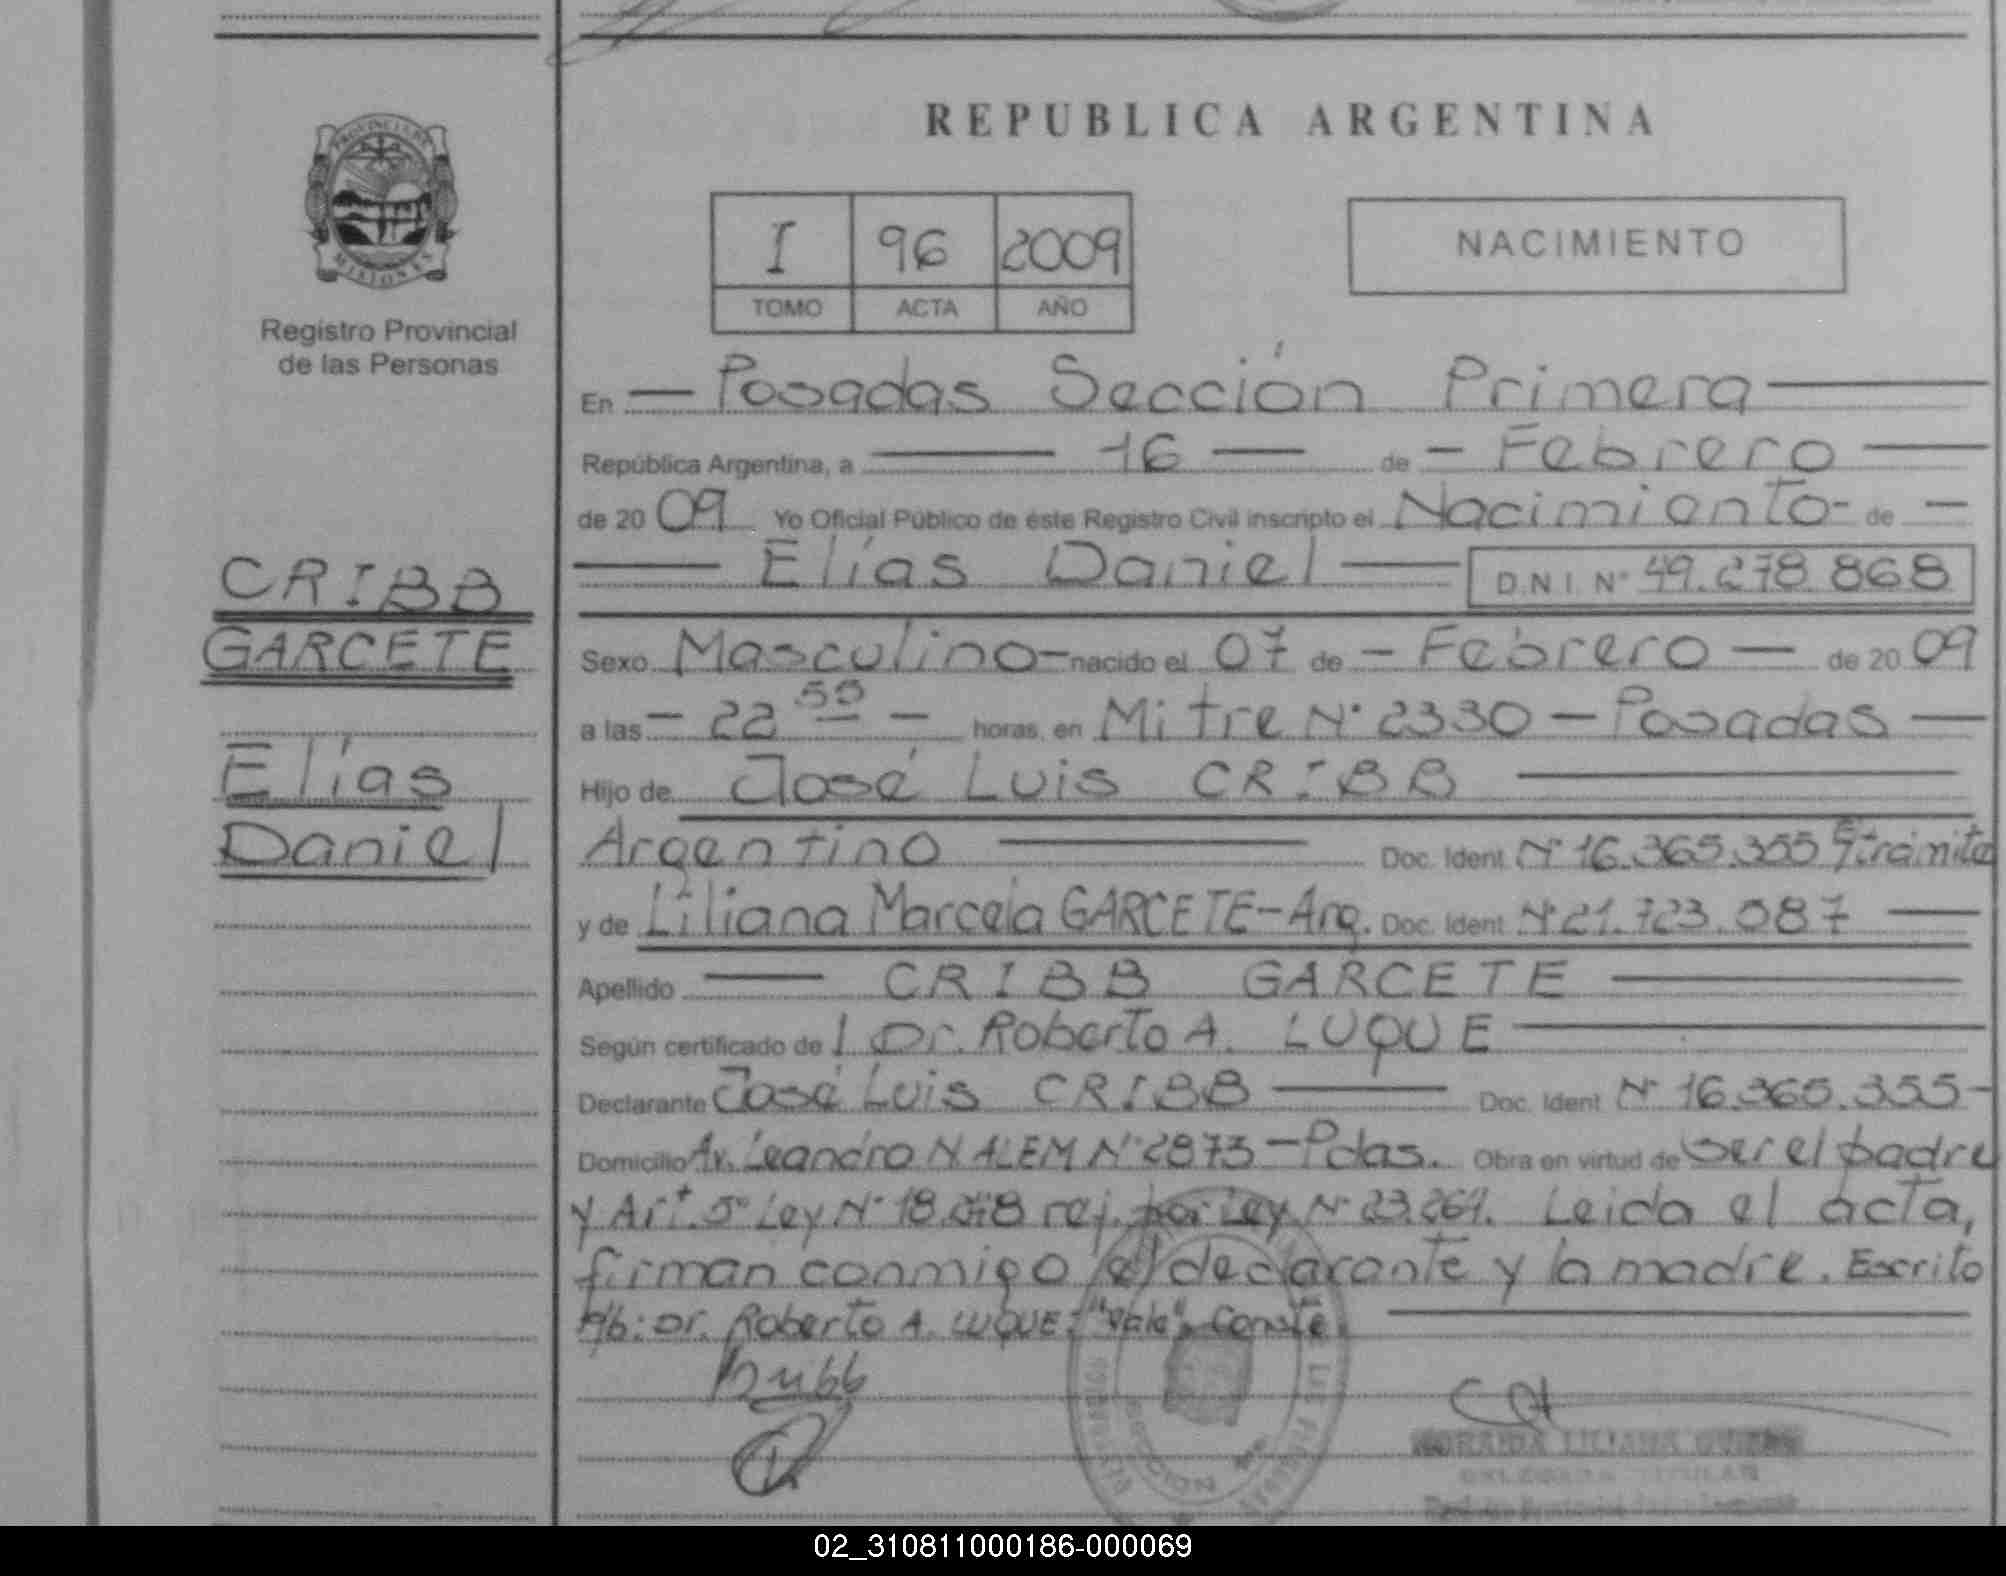 REPUBLICA ARGENTINA
PROVINCIA DE
MISIONES
Registro Provincial
de las Personas
I 96 2009
TOMO ACTA AÑO
NACIMIENTO
En — Posadas Sección Primera —
República Argentina, a — 16 — de — Febrero —
de 20 09 Yo Oficial Público de éste Registro Civil inscripto el Nacimiento - de —
— Elías Daniel — D.N.I. N° 49.278.868
CRIBB
GARCETE
Elías
Daniel
Sexo Masculino — nacido el 07 de — Febrero — de 20 09
a las — 22 55 — horas, en Mitre N° 2330 — Posadas —
Hijo de José Luis CRIBB —
Argentino — Doc. Ident N° 16.365.355 trámite
y de Liliana Marcela GARCETE - Arg. Doc. Ident N° 21.723.087 —
Apellido — CRIBB GARCETE —
Según certificado de l Dr. Roberto A. LUQUE —
Declarante José Luis CRIBB — Doc. Ident N° 16.365.355 -
Domicilio Av. Leandro N. ALEM N° 2873 — Pdas. Obra en virtud de ser el padre
y Art. 5° Ley N° 18.248 ref. por Ley N° 23.264. Leida el acta,
firman conmigo el declarante y la madre. Escrito
Dr. Roberto A. LUQUE: "Vale". Conste.
Cribb
LILIANA
DELEGADA TITULAR
02_310811000186-000069